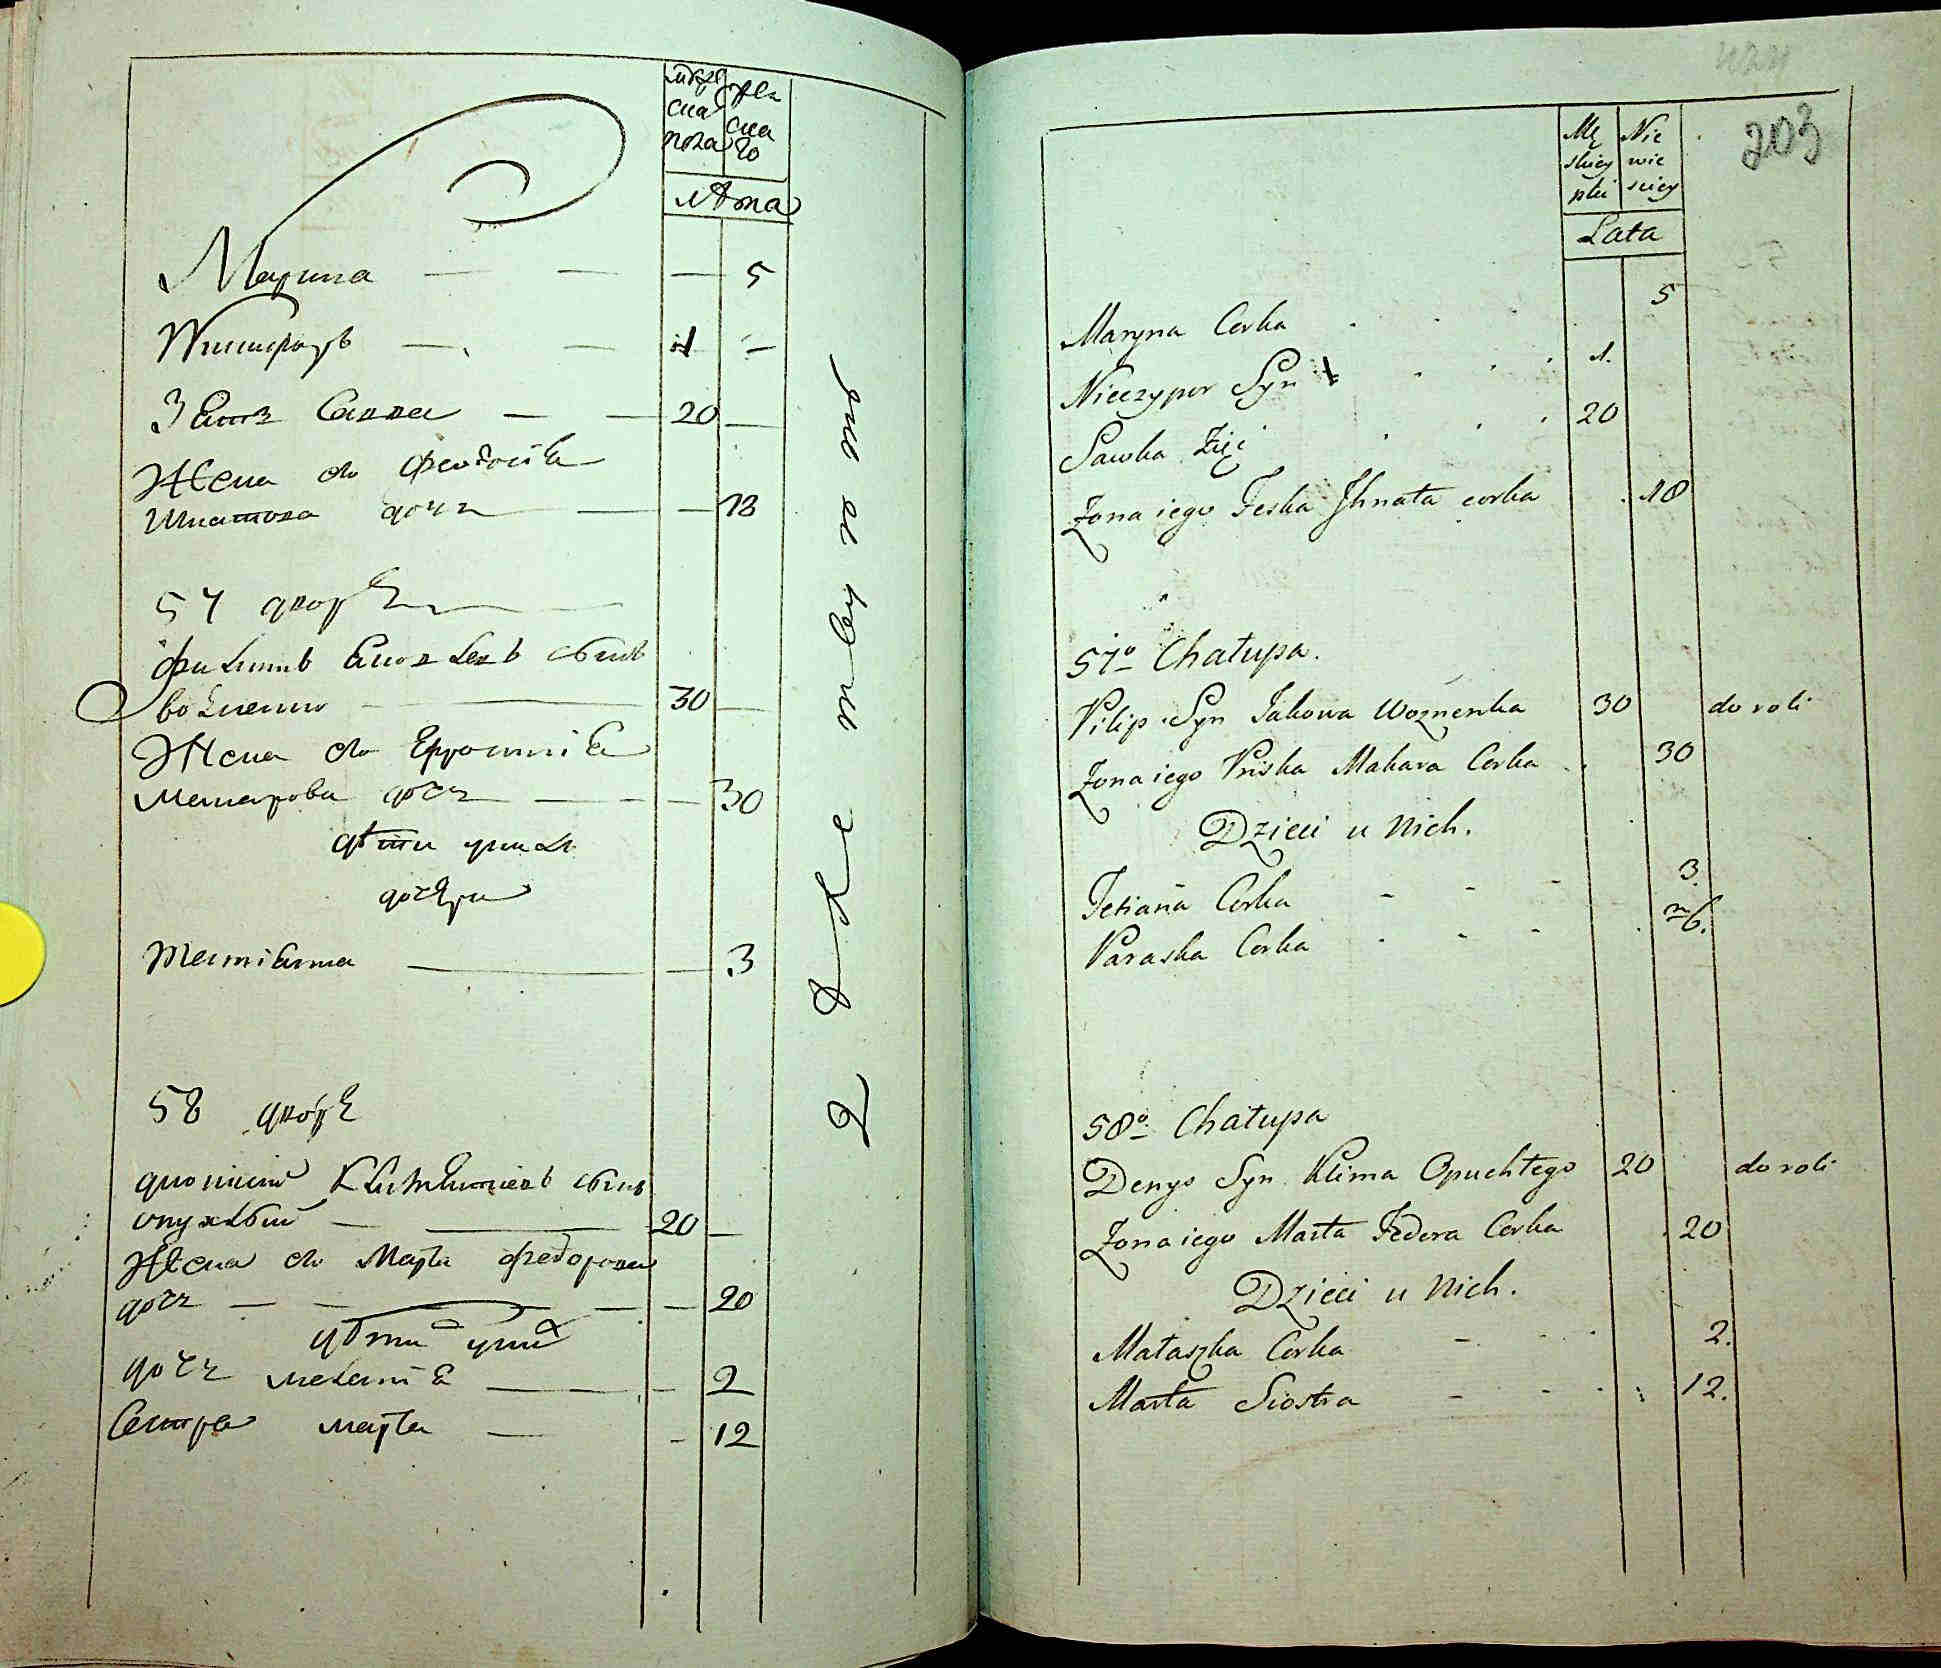 мужеска пола
женскаго
лѣта
Марина — — — 5
Никифоръ — — 1 —
Зять Савва — — 20 —
Жена его Феодосіа
Игнатова дочь — — 18
57 дворъ
Филиппъ Іаковлевъ сынъ
Возненко — 30 —
Жена его Ефросиніа
Макарова дочь — — 30
дѣти ихъ
дочери
Татіанна — — 3
58 дворъ
Дионисий Климентіевъ сынъ
опухлый — — 20 —
Жена его Марта Федорова
дочь — — — — 20
дѣти ихъ
дочь Меланіа — — 2
Сестра Марта — — 12
203
Męskiey płci
Niewieściey
Lata
Maryna Corka 5
Nieczypor Syn 1.
Sawka Zięć 20
Zona iego Feska Ihnata corka 18
57o Chałupa.
Pilip Syn Jakowa Woznenka 30 do roli
Zona iego Priska Makara Corka 30
Dzieci u Nich.
Tetiana Corka 3.
Paraska Corka m 6.
58o Chałupa
Denys Syn Klima Opuchłego 20 do roli
Zona iego Marta Fedora Corka 20
Dzieci u Nich.
Małaszka Corka 2.
Marta Siostra 12.